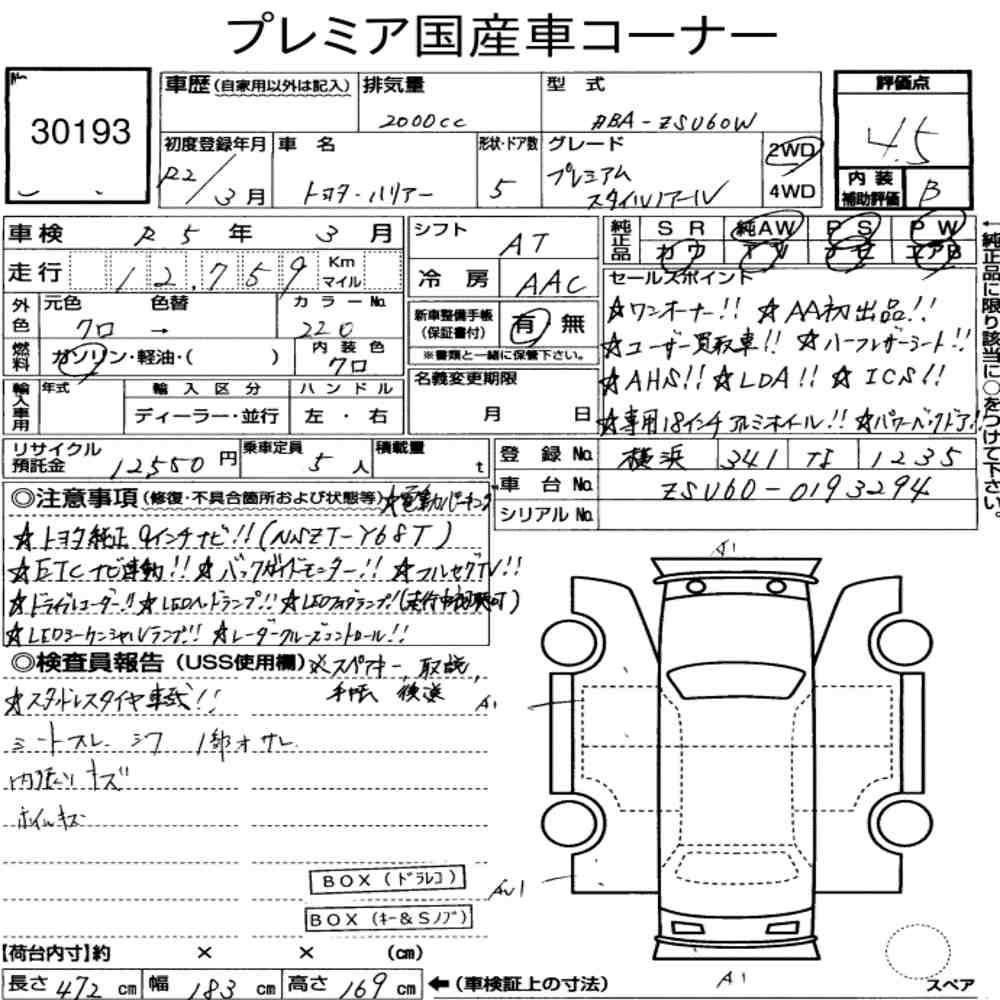 プレミア国産車コーナー
No
30193
車歴 (自家用以外は記入)
排気量
2000cc
型式
DBA-ZSU60W
評価点
4.5
内装補助評価
B
初度登録年月
R2/3月
車名
トヨタ・ハリアー
形状・ドア数
5
グレード
プレミアム
スタイルノアール
2WD
4WD
車検 R5年 3月
走行 12,759 Km マイル
外色 元色 クロ → 色替 カラーNo. 220
燃料 ガソリン・軽油・( ) 内装色 クロ
輸入車用 年式 輸入区分 ディーラー・並行 ハンドル 左・右
シフト AT
冷房 AAC
新車整備手帳 (保証書付) 有・無
※書類と一緒に保管下さい。
名義変更期限
月 日
純正品 SR 純AW PS PW
カワ TV ナビ エアB
←純正品に限り該当に○をつけて下さい。
セールスポイント
☆ワンオーナー!! ☆AA初出品!!
☆ユーザー買取車!! ☆ハーフレザーシート!!
☆AHS!! ☆LDA!! ☆ICS!!
☆専用18インチアルミホイール!! ☆パワーバックドア!!
リサイクル預託金 12550円
乗車定員 5人
積載量 t
登録No. 横浜 341 1235
車台No. ZSU60-0193294
シリアルNo.
◎注意事項 (修復・不具合箇所および状態等) ☆電動パーキング
☆トヨタ純正9インチナビ!! (NSZT-Y68T)
☆ETCナビ連動!! ☆バックガイドモニター!! ☆フルセグTV!!
☆ドライブレコーダー!! ☆LEDヘッドランプ!! ☆LEDフォグランプ!! (走行中視聴可)
☆LEDシーケンシャルランプ!! ☆レーダークルーズコントロール!!
◎検査員報告 (USS使用欄) ※スペアキー、取説、
手帳 後送
☆スタッドレスタイヤ車載!!
シートスレ シワ 1部オサレ
内張りキズ
ホイルキズ
BOX (ドラレコ)
BOX (キー&Sノブ)
A1
A1
AU1
A1
スペア
【荷台内寸】約 × × (cm)
長さ 472 cm 幅 183 cm 高さ 169 cm ←(車検証上の寸法)